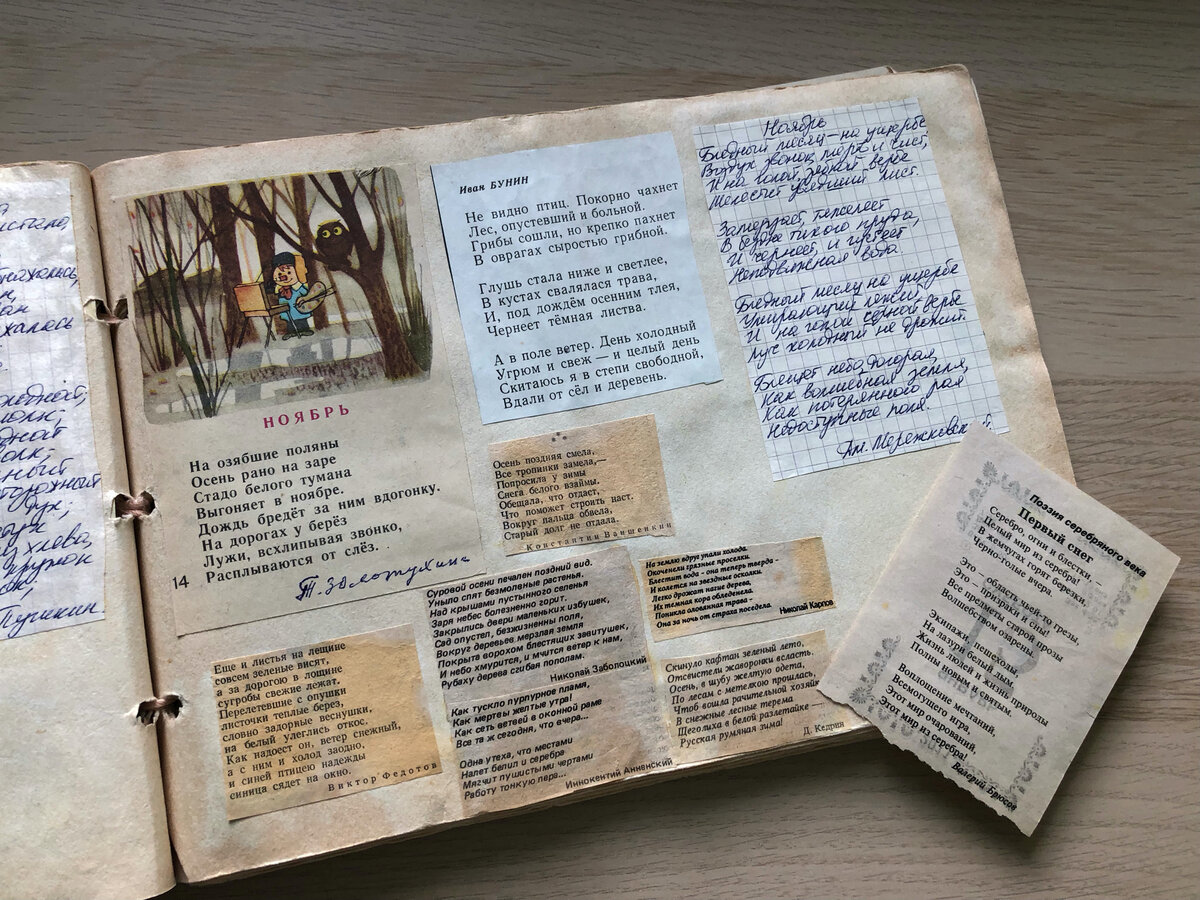 НОЯБРЬ
На озябшие поляны
Осень рано на заре
Стадо белого тумана
Выгоняет в ноябре.
Дождь бредёт за ним вдогонку.
На дорогах у берёз
Лужи, всхлипывая звонко,
Расплываются от слёз.
14
Т. Золотухина
Иван БУНИН
Не видно птиц. Покорно чахнет
Лес, опустевший и больной.
Грибы сошли, но крепко пахнет
В оврагах сыростью грибной.
Глушь стала ниже и светлее,
В кустах свалялася трава,
И, под дождём осенним тлея,
Чернеет тёмная листва.
А в поле ветер. День холодный
Угрюм и свеж — и целый день
Скитаюсь я в степи свободной,
Вдали от сёл и деревень.
Ноябрь
Бледный месяц — на ущербе
Воздух звонок, мертв и чист,
И на голой, зябкой вербе
Шелестит увядший лист.
Замерзает, тяжелеет
В бездне тихого пруда,
И чернеет, и густеет
Неподвижная вода.
Бледный месяц на ущербе
Умирающий лежит,
И на голой черной вербе
Луч холодный не дрожит.
Блещет небо, догорая,
Как волшебная земля,
Как потерянного рая
Недоступные поля.
Дм. Мережковский
Осень поздняя смела,
Все тропинки замела,—
Попросила у зимы
Снега белого взаймы.
Обещала, что отдаст,
Что поможет строить наст.
Вокруг пальца обвела,
Старый долг не отдала.
Константин Ваншенкин
Суровой осени печален поздний вид.
Уныло спят безмолвные растенья.
Над крышами пустынного селенья
Заря небес болезненно горит.
Закрылись двери маленьких избушек,
Сад опустел, безжизненны поля,
Вокруг деревьев мерзлая земля
Покрыта ворохом блестящих завитушек,
И небо хмурится, и мчится ветер к нам,
Рубаху дерева сгибая пополам.
Николай Заболоцкий
На землю вдруг упали холода.
Окоченели грязные проселки.
Блестит вода - она теперь тверда -
И колется на звездные осколки.
Легко дрожат нагие дерева,
Их темная кора обледенела.
Поникла оловянная трава -
Она за ночь от страха поседела.
Николай Карпов
Еще и листья на лещине
совсем зеленые висят,
а за дорогою в лощине
сугробы свежие лежат.
Перелетевшие с опушки
листочки теплые берез,
словно задорные веснушки,
на белый улеглись откос.
Как надоест он, ветер снежный,
а с ним и холод заодно,
и синей птицею надежды
синица сядет на окно.
Виктор Федотов
Как тускло пурпурное пламя,
Как мертвы желтые утра!
Как сеть ветвей в оконной раме
Все та ж сегодня, что вчера...
Одна утеха, что местами
Налет белил и серебра
Мягчит пушистыми чертами
Работу тонкую пера...
Иннокентий Анненский
Скинуло кафтан зеленый лето,
Отсвистели жаворонки всласть.
Осень, в шубу желтую одета,
По лесам с метелкою прошлась,
Чтоб вошла рачительной хозяйкой
В снежные лесные терема
Щеголиха в белой разлетайке —
Русская румяная зима!
Д. Кедрин
Поэзия серебряного века
Первый снег
Серебро, огни и блестки, —
Целый мир из серебра!
В жемчугах горят березки,
Черно-голые вчера.
Это — область чьей-то грезы,
Это — призраки и сны!
Все предметы старой прозы
Волшебством озарены.
Экипажи, пешеходы,
На лазури белый дым,
Жизнь людей и жизнь природы
Полны новым и святым.
Воплощение мечтаний,
Всемогущего игра,
Этот мир очарований,
Этот мир из серебра!
Валерий Брюсов
Пушкин